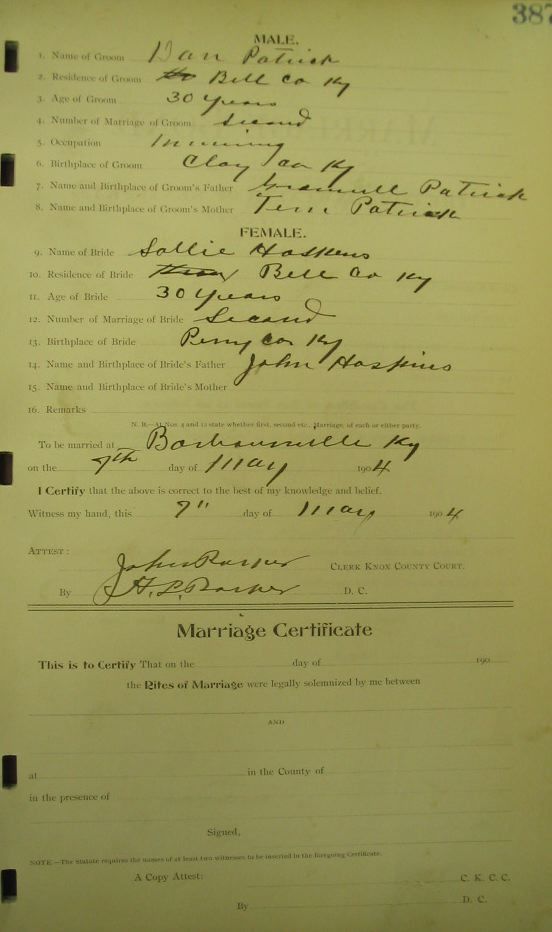 387
MALE.
1. Name of Groom Dan Patrick
2. Residence of Groom Bell Co Ky
3. Age of Groom 30 years
4. Number of Marriage of Groom Second
5. Occupation Mining
6. Birthplace of Groom Clay Co Ky
7. Name and Birthplace of Groom's Father Patrick
8. Name and Birthplace of Groom's Mother Patrick
FEMALE.
9. Name of Bride Sallie Hoskins
10. Residence of Bride Bell Co Ky
11. Age of Bride 30 years
12. Number of Marriage of Bride Second
13. Birthplace of Bride Perry Co Ky
14. Name and Birthplace of Bride's Father John Hoskins
15. Name and Birthplace of Bride's Mother
16. Remarks
N. B.—At Nos. 4 and 12 state whether first, second etc., Marriage, of each or either party.
To be married at Barbourville Ky
on the 7th day of May 1904
I Certify that the above is correct to the best of my knowledge and belief.
Witness my hand, this 7" day of May 1904
ATTEST:
John Parker CLERK KNOX COUNTY COURT.
By H. L. Parker D. C.
Marriage Certificate
This is to Certify That on the day of 190
the Rites of Marriage were legally solemnized by me between
AND
at in the County of
in the presence of
Signed,
NOTE.—The Statute requires the names of at least two witnesses to be inserted in the foregoing Certificate.
A Copy Attest: C. K. C. C.
By D. C.